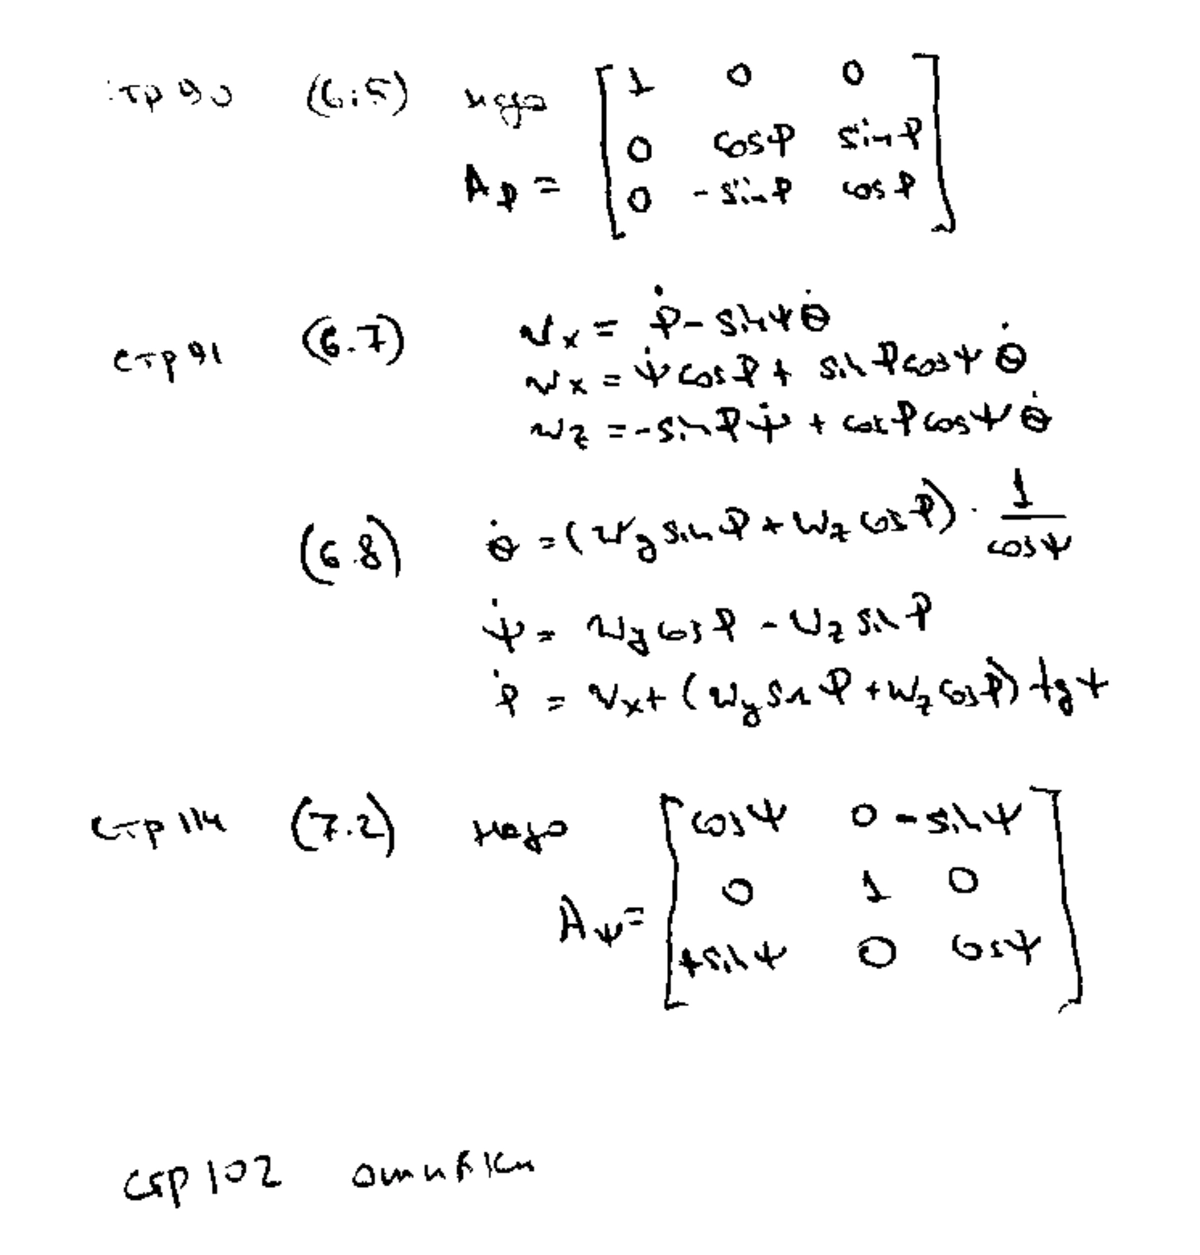 стр 90 (6.5) надо [1 0 0
0 cosφ sinφ
Aφ = 0 -sinφ cosφ]
стр 91 (6.7) wx = φ̇ - sinψ θ̇
wx = ψ̇ cosφ + sinφ cosψ θ̇
wz = -sinφ ψ̇ + cosφ cosψ θ̇
(6.8) θ̇ = (wy sinφ + wz cosφ) · 1/cosψ
ψ̇ = wy cosφ - wz sinφ
φ̇ = wx + (wy sinφ + wz cosφ) tgψ
стр 114 (7.2) надо [cosψ 0 -sinψ
Aψ = 0 1 0
+sinψ 0 cosψ]
стр 102 ошибки